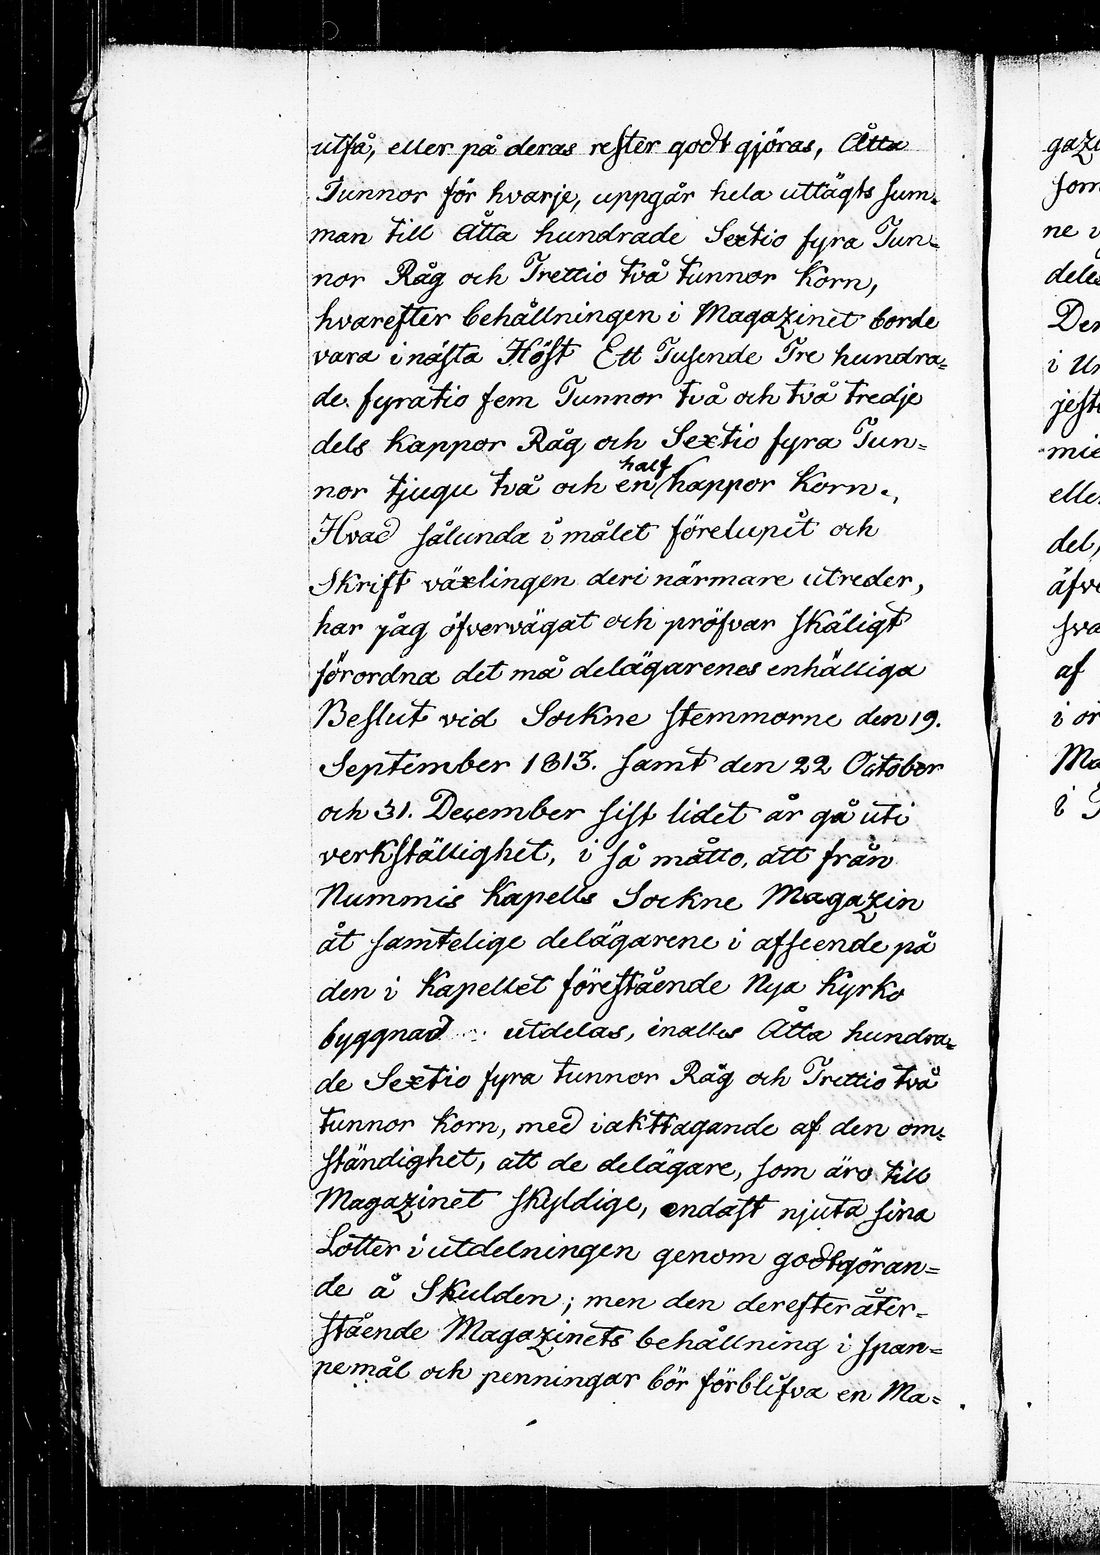 utfå, eller på deras rester godt gjöras, Åtta
Tunnor för hvarje, uppgår hela uttägts sum-
man till Åtta hundrade Sextio fyra Tun-
nor Råg och Trettio två tunnor Korn,
hvarefter behållningen i Magazinet borde
vara i nästa Höst Ett Tusende Tre hundra=
de fyratio fem Tunnor två och två tredje
dels kappor Råg och Sextio fyra Tun=
nor tjugu två och en half kappor Korn.,
Hvad sålunda i målet förelupit och
Skrift växlingen deri närmare utreder,
har jag öfvervägat och pröfvar skäligt
förordna det må delägarenes enhälliga
Beslut vid Sockne stemmorne den 19.
September 1813. samt den 22 October
och 31. December sist lidet år gå uti
verkställighet, i så måtto, att från
Nummis Kapells Sockne Magazin
åt samtelige delägarene i afseende på
den i Kapellet förestående Nya Kyrko
byggnad utdelas, inalles Åtta hundra=
de Sextio fyra tunnor Råg och Trettio två
tunnor Korn, med iakttagande af den om=
ständighet, att de delägare, som äro till
Magazinet skyldige, endast njuta sina
Lotter i utdelningen genom godtgöran=
de å Skulden; men den derefter åter=
stående Magazinets behållning i span=
nemål och penningar bör förblifva en Ma=
gazi
som
ne
Den
i
jest
mie
elle
del,
äfve
sva
af
i
Ma
i